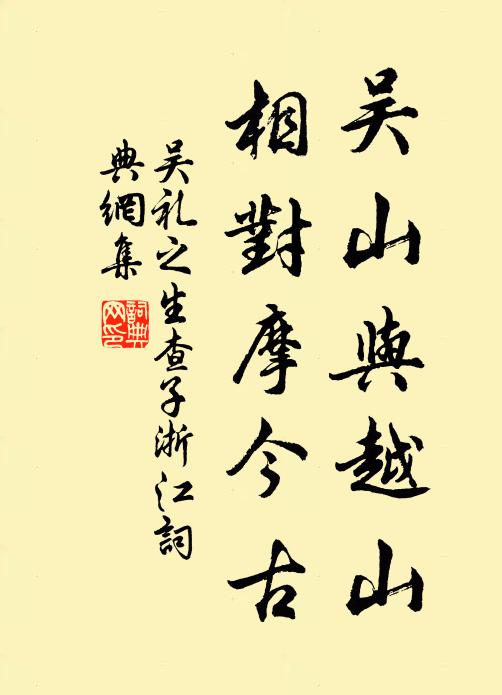 吴山與越山
相對摩今古
吴礼之生查子浙江詞
典網集
詞典
网印